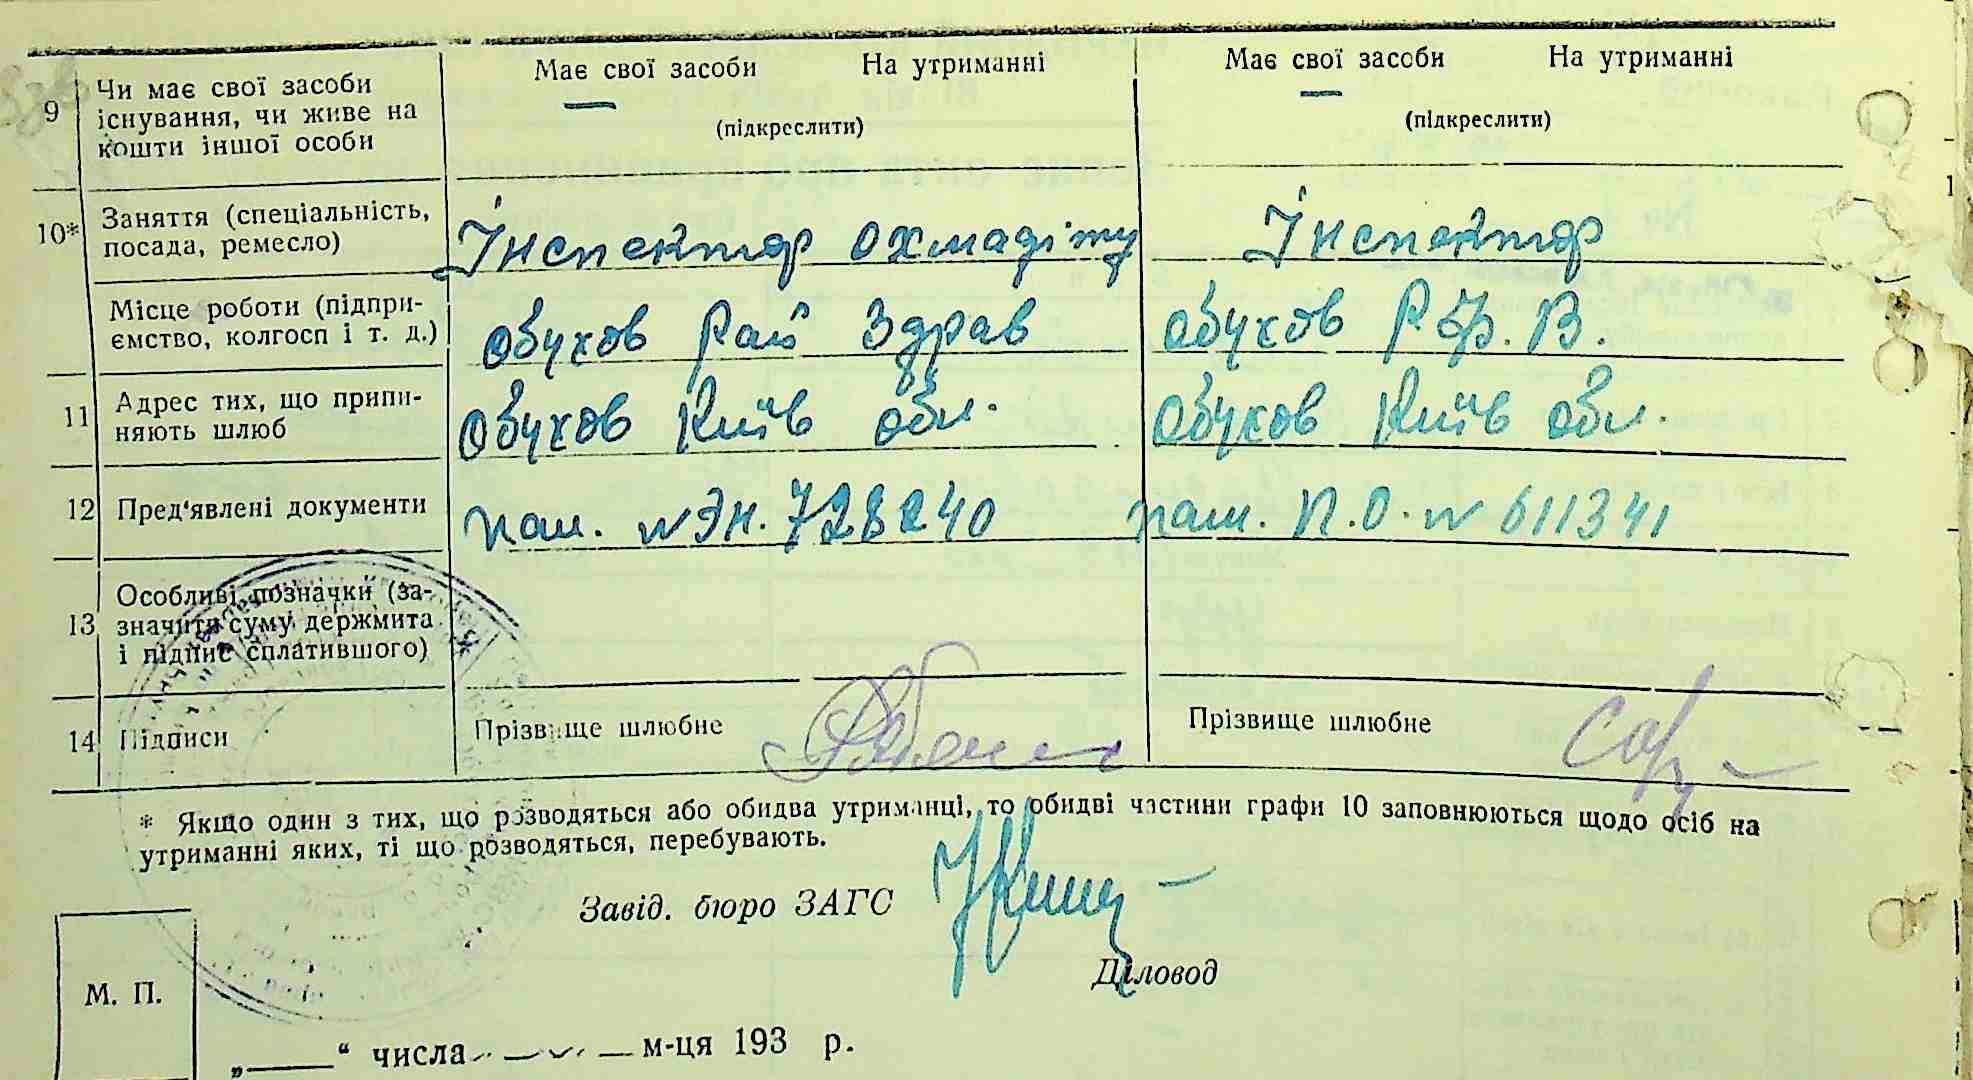 Має свої засоби На утриманні Має свої засоби На утриманні
9 Чи має свої засоби
існування, чи живе на
кошти іншої особи
(підкреслити) (підкреслити)
10* Заняття (спеціальність,
посада, ремесло)
Інспектор охмадіту Інспектор
Місце роботи (підпри-
ємство, колгосп і т. д.)
Обухов Рай Здрав Обухов Р.Ф.В.
11 Адрес тих, що припи-
няють шлюб
Обухов Київ обл. Обухов Київ обл.
12 Пред'явлені документи
паш. № ЭН. 728240 паш. П.О. № 611341
13 Особливі позначки (за-
значити суму держмита
і підпис сплатившого)
14 Підписи Прізвище шлюбне Прізвище шлюбне
* Якщо один з тих, що розводяться або обидва утриманці, то обидві частини графи 10 заповнюються щодо осіб на
утриманні яких, ті що розводяться, перебувають.
Завід. бюро ЗАГС
Діловод
М. П.
„ “ числа м-ця 193 р.